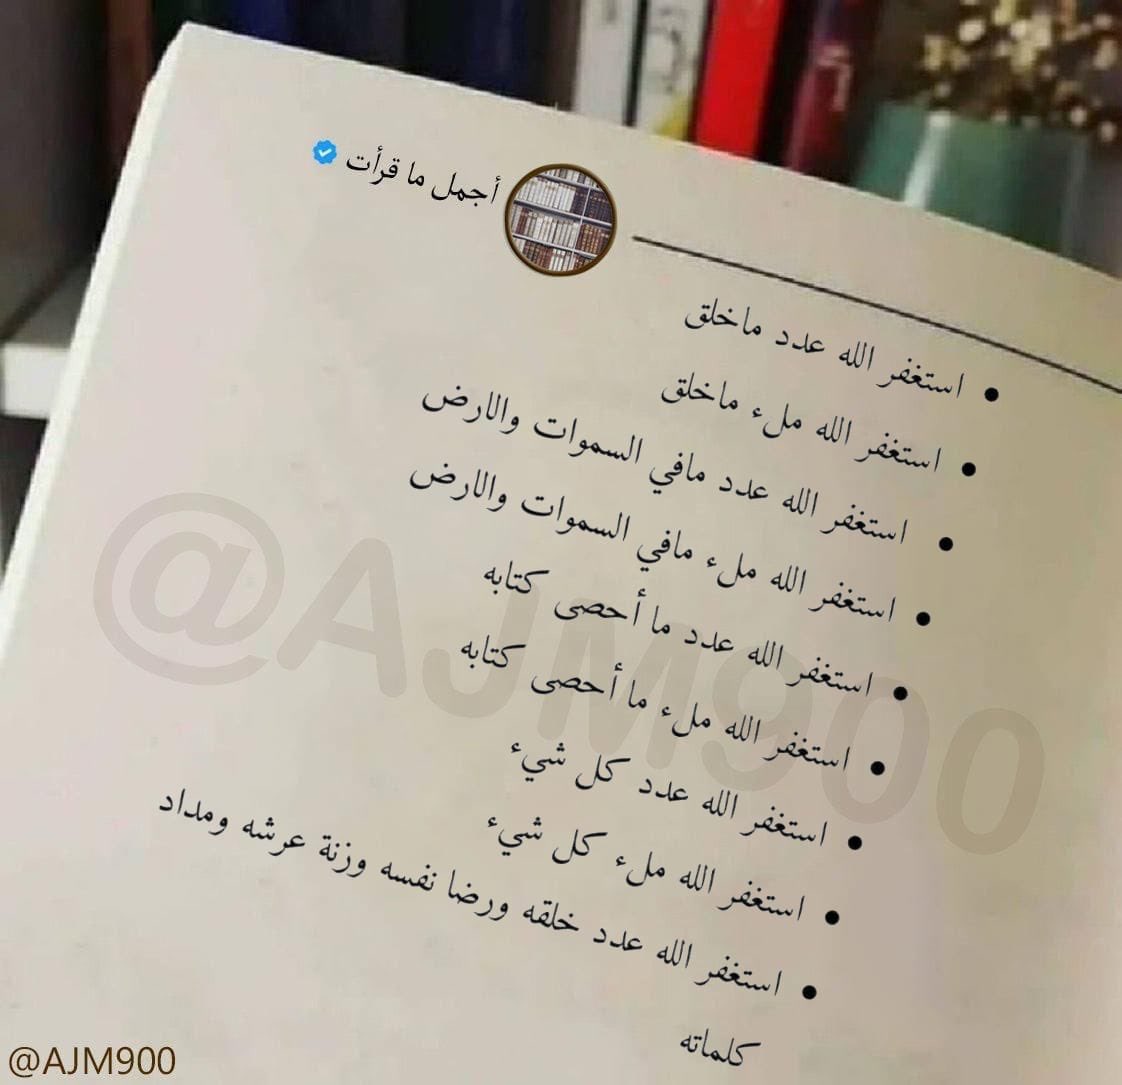 أجمل ما قرأت
• استغفر الله عدد ماخلق
• استغفر الله ملء ماخلق
• استغفر الله عدد مافي السموات والارض
• استغفر الله ملء مافي السموات والارض
• استغفر الله عدد ما أحصى كتابه
• استغفر الله ملء ما أحصى كتابه
• استغفر الله عدد كل شيء
• استغفر الله ملء كل شيء
• استغفر الله عدد خلقه ورضا نفسه وزنة عرشه ومداد
كلماته
@AJM900
@AJM900